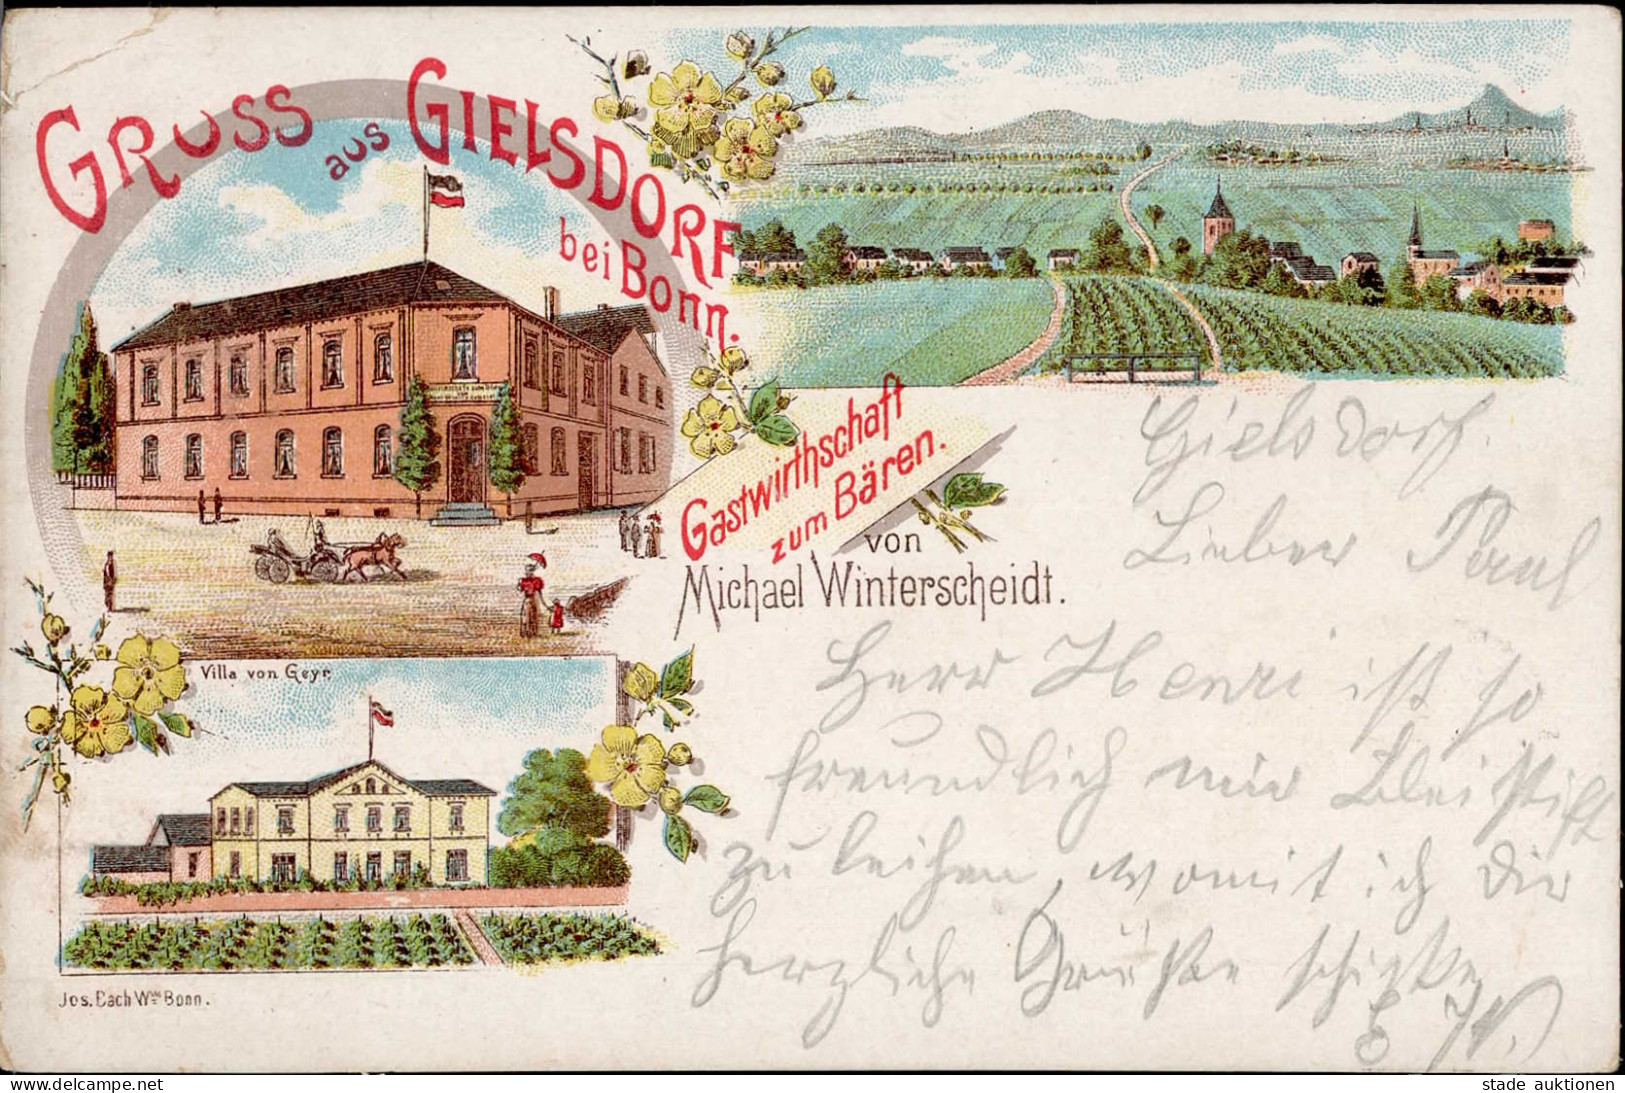 GRUSS
aus GIELSDORF
bei Bonn.
Gastwirthschaft
zum Bären.
von
Michael Winterscheidt.
Villa von Geyr.
Jos. Bach Wwe Bonn.
Gielsdorf.
Lieber Paul
Herr Henri ist so
freundlich mir Bleistift
zu leihen, womit ich Dir
herzliche Grüße schicke
stade auktionen